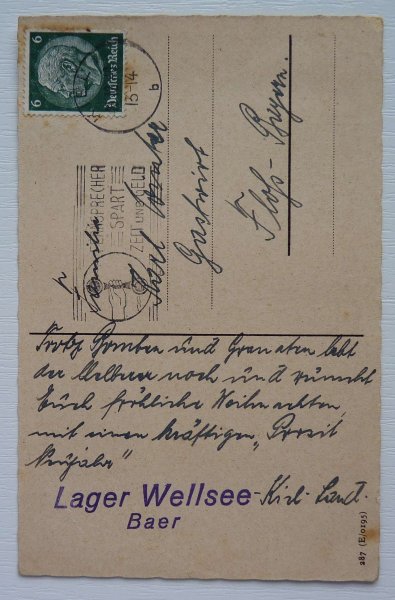 6 6
Deutsches Reich
13-14
b
FERNSPRECHER
SPART
ZEIT UND GELD
Familie
Karl
Gastwirt
Floß-Bayern.
Trotz Bomben und Granaten lebt
der noch und wünscht
Euch fröhliche Weihnachten,
mit einen kräftigen „Prosit
Neujahr"
Lager Wellsee-Kiel-Land.
Baer
287 (E/0195)